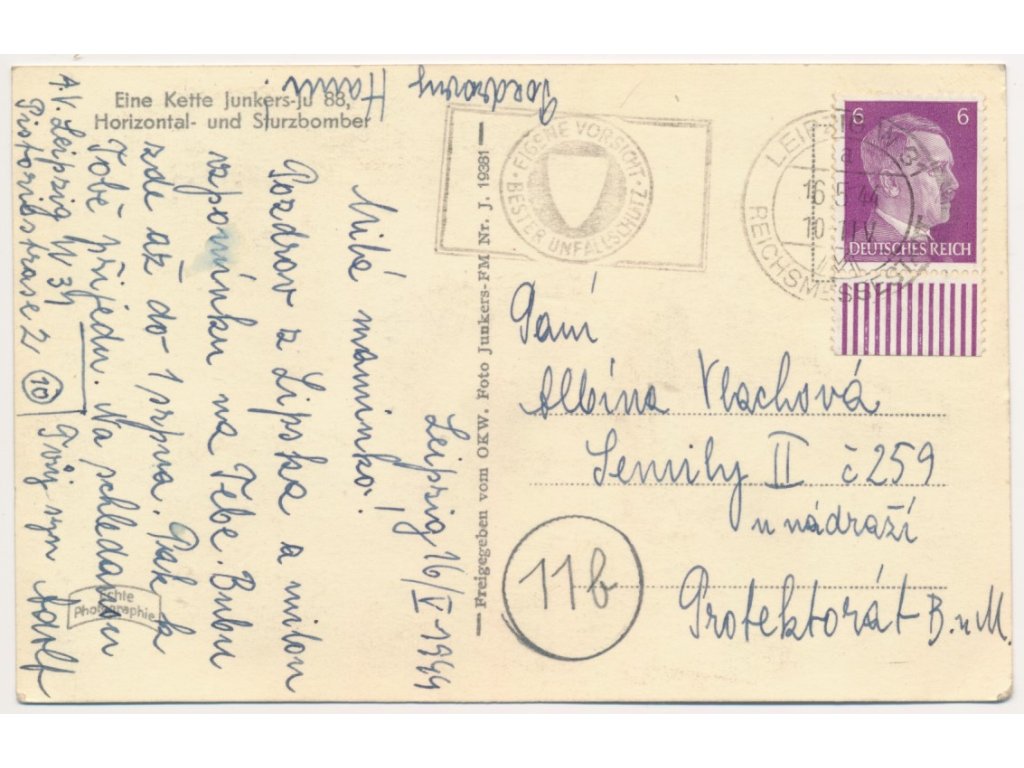 Eine Kette Junkers-Ju 88,
Horizontal- und Sturzbomber
Leipzig 16/V-1944
Milá maminko!
Pozdrav z Lipska a milou
vzpomínku na Tebe. Budu
zde až do 1 srpna. Pak k
Tobě přijedu. Na schledanou
Tvůj syn Adolf
A.V. Leipzig W 34
Pistorisstrase 2
10
Pozdraveny
Echte
Photographie
Freigegeben vom OKW. Foto Junkers-FM Nr. J. 19381
EIGENE VORSICHT
BESTER UNFALLSCHUTZ
LEIPZIG W 31
a
16.5.44
REICHSMESSESTADT
6 6
DEUTSCHES REICH
Paní
Albína Vlachová
Semily II č 259
u nádraží
Protektorát B.u M.
11b